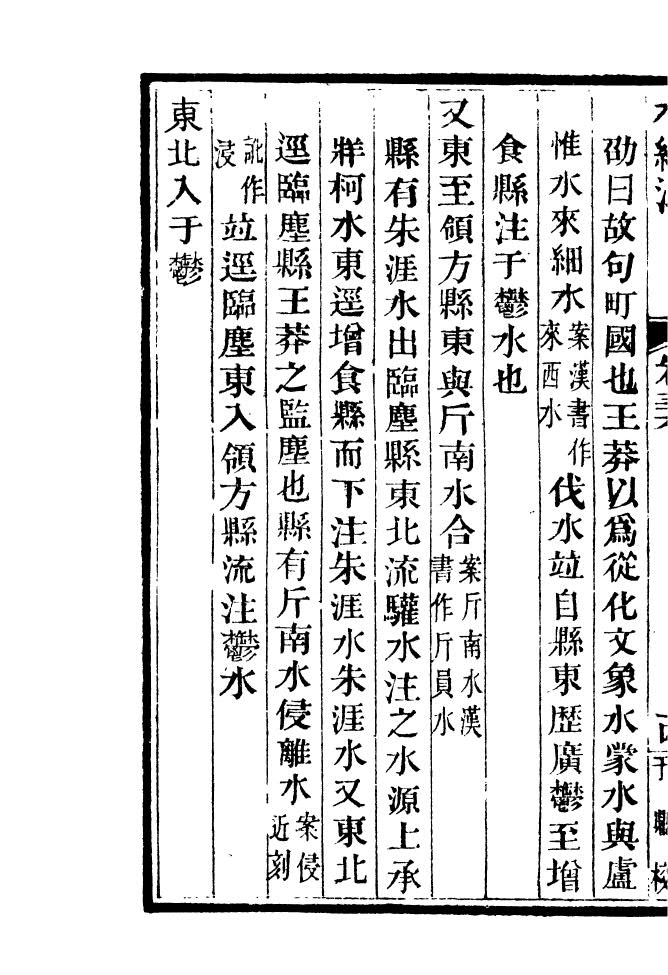 水經注 卷三十六
劭曰故句町國也王莽以爲從化文象水蒙水與盧
惟水來細水案漢書作來西水伐水竝自縣東歷廣鬱至增
食縣注于鬱水也
又東至領方縣東與斤南水合案斤南水漢書作斤員水
縣有朱涯水出臨塵縣東北流驩水注之水源上承
牂柯水東逕增食縣而下注朱涯水朱涯水又東北
逕臨塵縣王莽之監塵也縣有斤南水侵離水案侵近刻
訛作浸竝逕臨塵東入領方縣流注鬱水
東北入于鬱